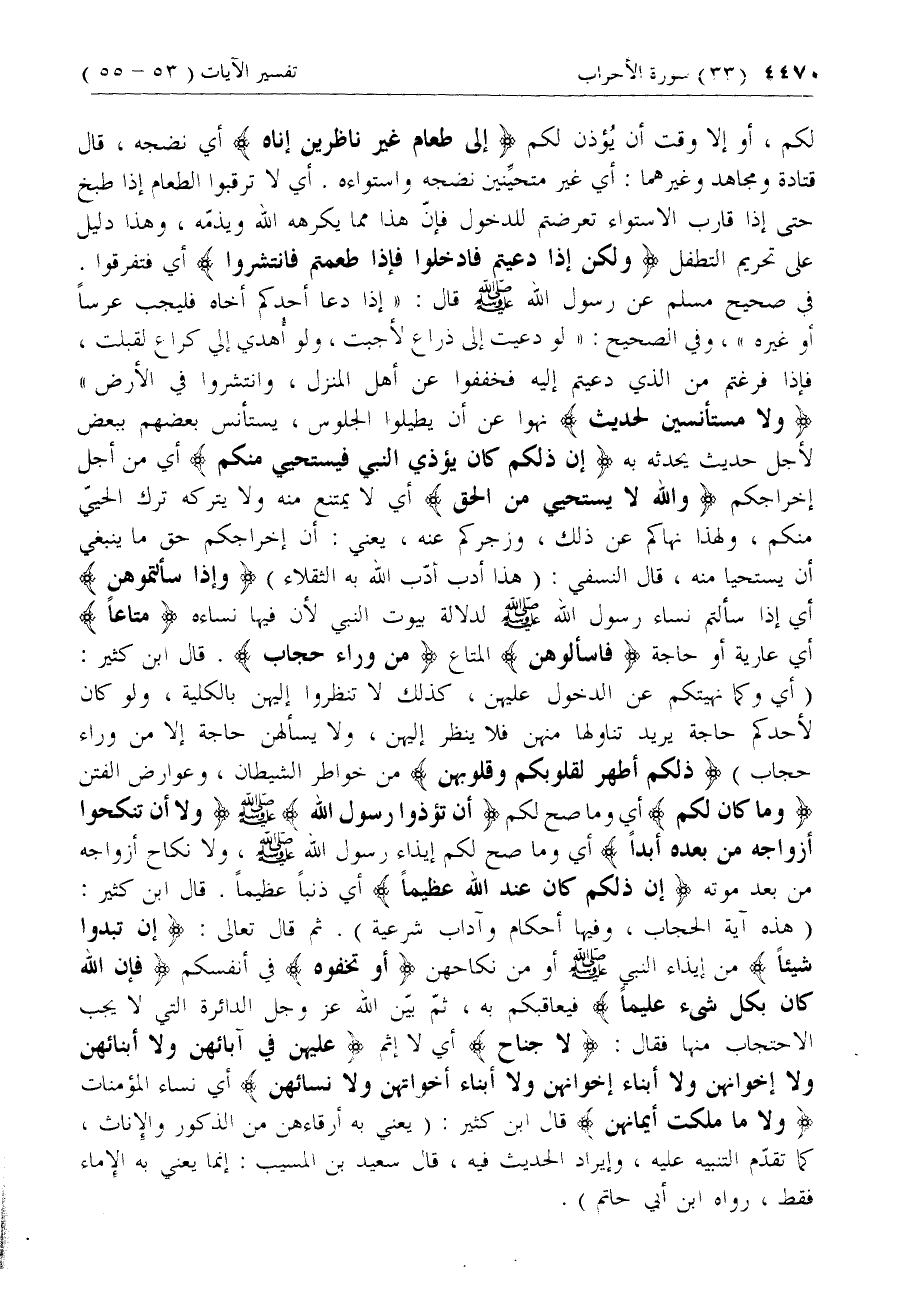 ٤٤٧٠ (٣٣) سورة الأحزاب تفسير الآيات ( ٥٣ – ٥٥ )
لكم ، أو إلا وقت أن يُؤذن لكم ﴿ إلى طعام غير ناظرين إناه ﴾ أي نضجه ، قال
قتادة ومجاهد وغيرهما : أي غير متحيِّنين نضجه واستواءه . أي لا ترقبوا الطعام إذا طبخ
حتى إذا قارب الاستواء تعرضتم للدخول فإنّ هذا مما يكرهه الله ويذمّه ، وهذا دليل
على تحريم التطفل ﴿ ولكن إذا دعيتم فادخلوا فإذا طعمتم فانتشروا ﴾ أي فتفرقوا .
في صحيح مسلم عن رسول الله ﷺ قال : « إذا دعا أحدكم أخاه فليجب عرساً
أو غيره » ، وفي الصحيح : « لو دعيت إلى ذراع لأجبت ، ولو أُهدي إلي كراع لقبلت ،
فإذا فرغتم من الذي دعيتم إليه فخففوا عن أهل المنزل ، وانتشروا في الأرض »
﴿ ولا مستأنسين لحديث ﴾ نهوا عن أن يطيلوا الجلوس ، يستأنس بعضهم ببعض
لأجل حديث يحدثه به ﴿ إن ذلكم كان يؤذي النبي فيستحيي منكم ﴾ أي من أجل
إخراجكم ﴿ والله لا يستحيي من الحق ﴾ أي لا يمتنع منه ولا يتركه ترك الحييّ
منكم ، ولهذا نهاكم عن ذلك ، وزجركم عنه ، يعني : أن إخراجكم حق ما ينبغي
أن يستحيا منه ، قال النسفي : ( هذا أدب أدّب الله به الثقلاء ) ﴿ وإذا سألتموهن ﴾
أي إذا سألتم نساء رسول الله ﷺ لدلالة بيوت النبي لأن فيها نساءه ﴿ متاعاً ﴾
أي عارية أو حاجة ﴿ فاسألوهن ﴾ المتاع ﴿ من وراء حجاب ﴾ . قال ابن كثير :
( أي وكما نهيتكم عن الدخول عليهن ، كذلك لا تنظروا إليهن بالكلية ، ولو كان
لأحدكم حاجة يريد تناولها منهن فلا ينظر إليهن ، ولا يسألهن حاجة إلا من وراء
حجاب ) ﴿ ذلكم أطهر لقلوبكم وقلوبهن ﴾ من خواطر الشيطان ، وعوارض الفتن
﴿ وما كان لكم ﴾ أي وما صح لكم ﴿ أن تؤذوا رسول الله ﴾ ﷺ ﴿ ولا أن تنكحوا
أزواجه من بعده أبداً ﴾ أي وما صح لكم إيذاء رسول الله ﷺ ، ولا نكاح أزواجه
من بعد موته ﴿ إن ذلكم كان عند الله عظيماً ﴾ أي ذنباً عظيماً . قال ابن كثير :
( هذه آية الحجاب ، وفيها أحكام وآداب شرعية ) . ثم قال تعالى : ﴿ إن تبدوا
شيئاً ﴾ من إيذاء النبي ﷺ أو من نكاحهن ﴿ أو تخفوه ﴾ في أنفسكم ﴿ فإن الله
كان بكل شيء عليماً ﴾ فيعاقبكم به ، ثمّ بيّن الله عز وجل الدائرة التي لا يجب
الاحتجاب منها فقال : ﴿ لا جناح ﴾ أي لا إثم ﴿ عليهن في آبائهن ولا أبنائهن
ولا إخوانهن ولا أبناء إخوانهن ولا أبناء أخواتهن ولا نسائهن ﴾ أي نساء المؤمنات
﴿ ولا ما ملكت أيمانهن ﴾ قال ابن كثير : ( يعني به أرقاءهن من الذكور والإناث ،
كما تقدّم التنبيه عليه ، وإيراد الحديث فيه ، قال سعيد بن المسيب : إنما يعني به الإماء
فقط ، رواه ابن أبي حاتم ) .